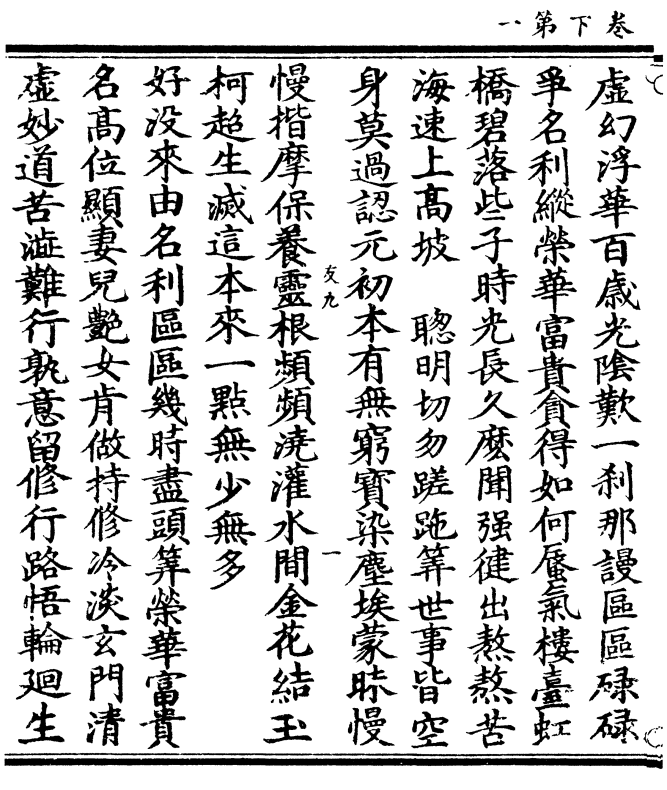 卷下第一
虛幻浮華百歲光陰歎一刹那謾區區碌碌
爭名利縱榮華富貴貪得如何蜃氣樓臺虹
橋碧落些子時光長久麽聞强徤出熬熬苦
海速上高坡　聰明切勿蹉跎筭世事皆空
身莫過認元初本有無窮寳染塵埃蒙昧慢
友九
一
慢揩摩保養靈根頻頻澆灌水間金花結玉
柯超生滅這本來一點無少無多
好没來由名利區區幾時盡頭筭榮華富貴
名高位顯妻兒艶女肯做持修冷淡玄門清
虛妙道苦澁難行孰意留修行路悟輪廻生